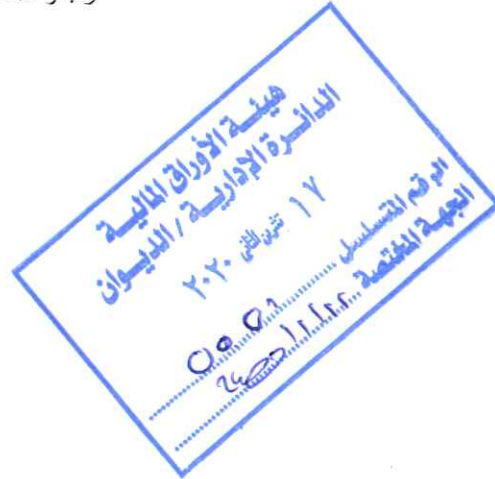 هيئة الأوراق المالية
الدائرة الإدارية / الديوان
١٧ تشرين الثاني ٢٠٢٠
الرقم المتسلسل
الجهة المختصة